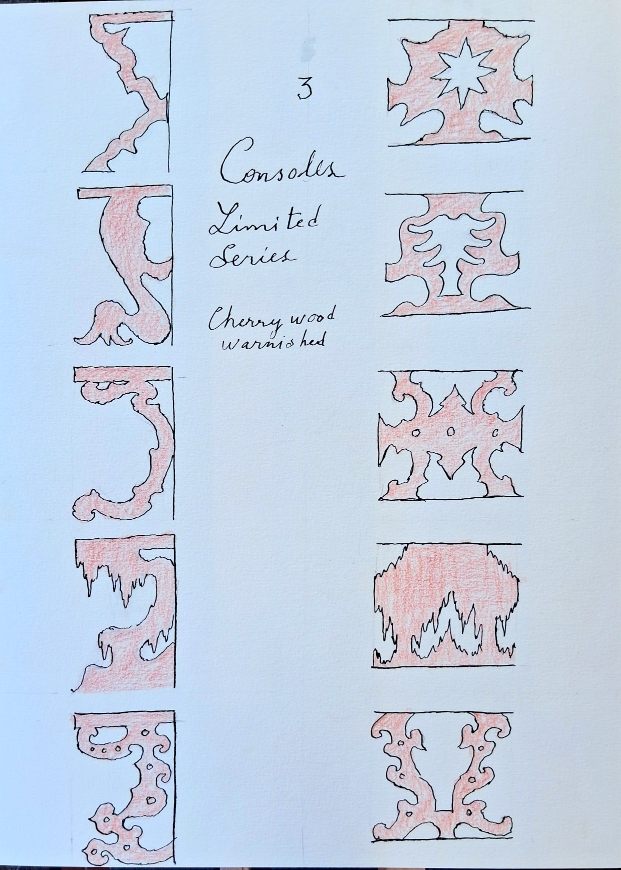 3
Consoles
Limited
Series
Cherry wood
warnished